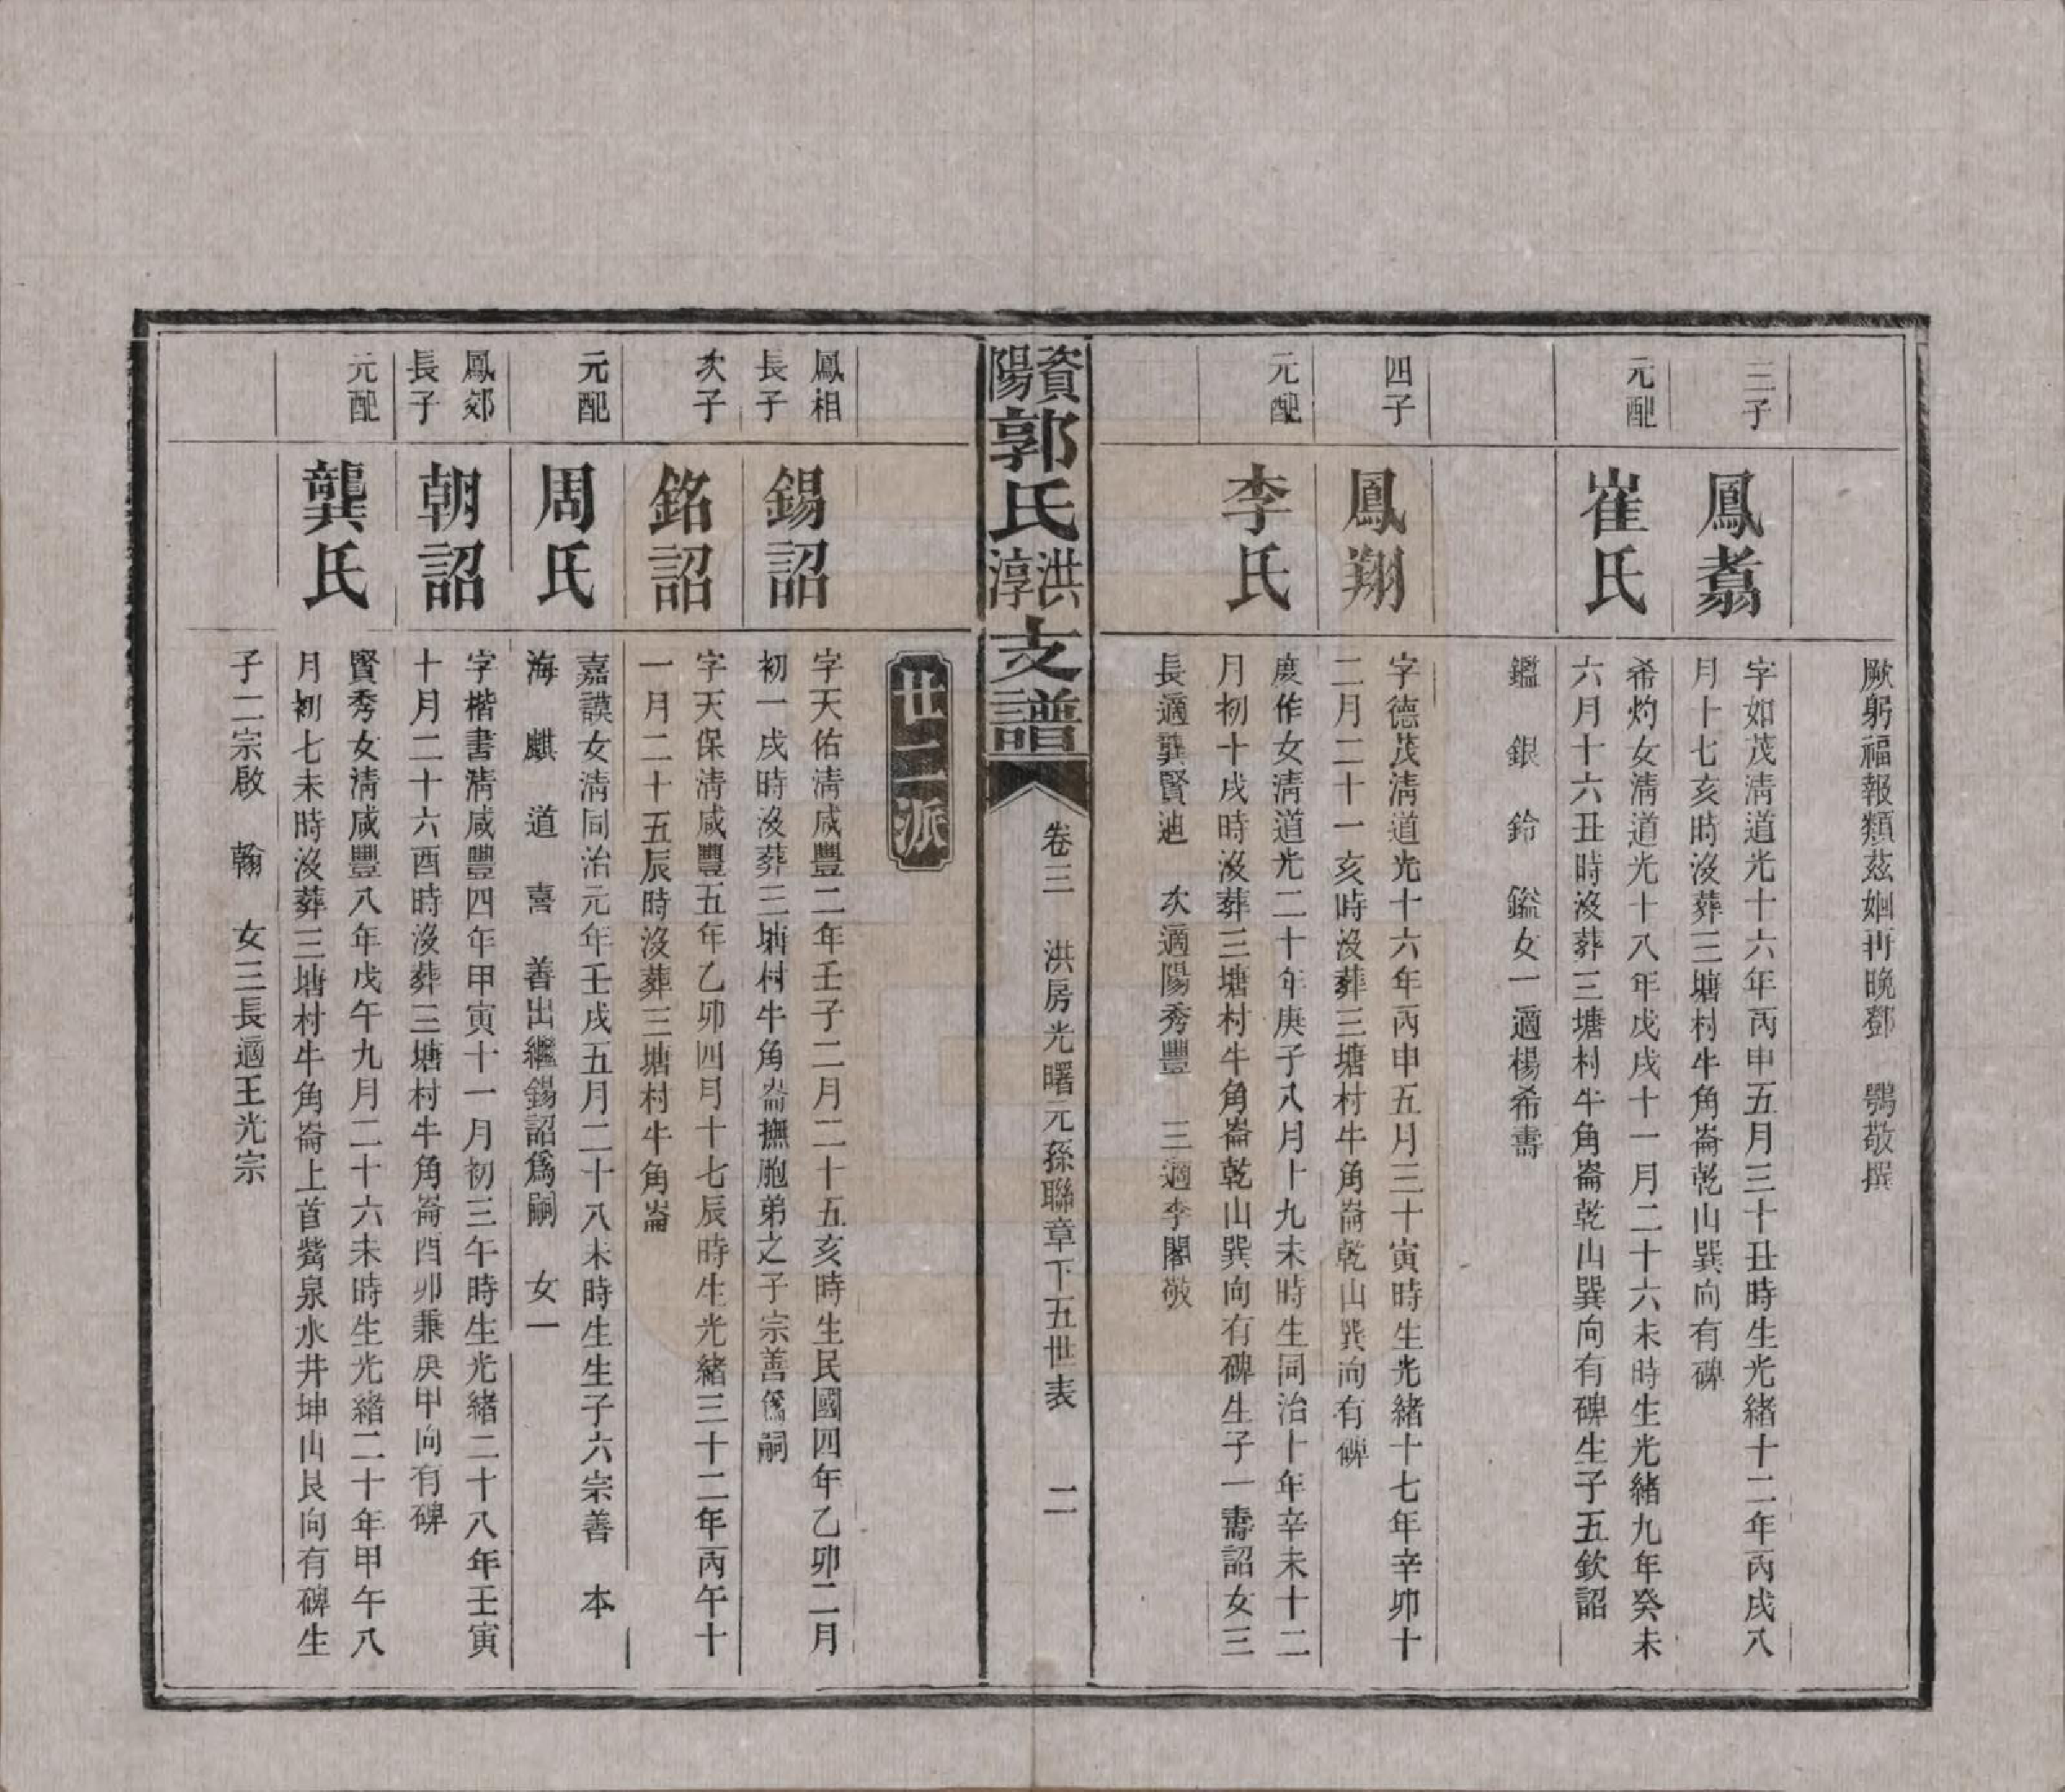 厥躬福報類茲姻再晚鄧　鶚敬撰
三子
鳳翥
字如茂淸道光十六年丙申五月三十丑時生光緒十二年丙戌八
月十七亥時沒葬三塘村牛角崙乾山巽向有碑
元配
崔氏
希灼女淸道光十八年戊戌十一月二十六未時生光緒九年癸未
六月十六丑時沒葬三塘村牛角崙乾山巽向有碑生子五欽詔
鑑　銀　鈴　鎰女一適楊希壽
四子
鳳翔
字德茂淸道光十六年丙申五月三十寅時生光緒十七年辛卯十
二月二十一亥時沒葬三塘村牛角崙乾山巽向有碑
元配
李氏
度作女淸道光二十年庚子八月十九未時生同治十年辛未十二
月初十戌時沒葬三塘村牛角崙乾山巽向有碑生子一壽詔女三
長適龔賢迪　次適陽秀豐　三適李閣敬
資陽郭氏洪淳支譜
卷三　洪房光曙元孫聯章下五世表　二
世二派
鳳相長子
錫詔
字天佑淸咸豐二年壬子二月二十五亥時生民國四年乙卯二月
初一戌時沒葬三塘村牛角崙撫胞弟之子宗善爲嗣
次子
銘詔
字天保淸咸豐五年乙卯四月十七辰時生光緒三十二年丙午十
一月二十五辰時沒葬三塘村牛角崙
元配
周氏
嘉謨女淸同治元年壬戌五月二十八未時生生子六宗善　本
海　麒　道　喜　善出繼錫詔爲嗣　女一
鳳郊長子
朝詔
字楷書淸咸豐四年甲寅十一月初三午時生光緒二十八年壬寅
十月二十六酉時沒葬三塘村牛角崙酉卯兼庚甲向有碑
元配
龔氏
賢秀女淸咸豐八年戊午九月二十六未時生光緒二十年甲午八
月初七未時沒葬三塘村牛角崙上首觜泉水井坤山艮向有碑生
子二宗啟　翰　女三長適王光宗